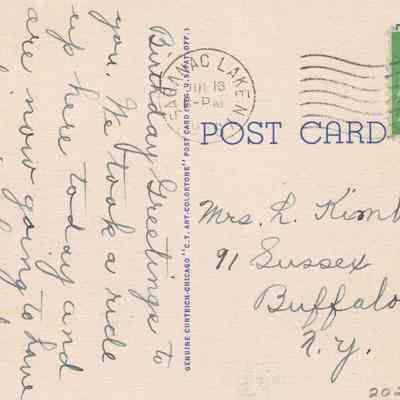 Birthday Greetings to
you. We took a ride
up here today and
are now going to have
GENUINE CURTEICH-CHICAGO "C.T. ART-COLORTONE" POST CARD (REG. U.S. PAT. OFF.)
SARANAC LAKE N.
13
PM
POST CARD
Mrs. L. Kimb
91 Sussex
Buffalo
N.Y.
202